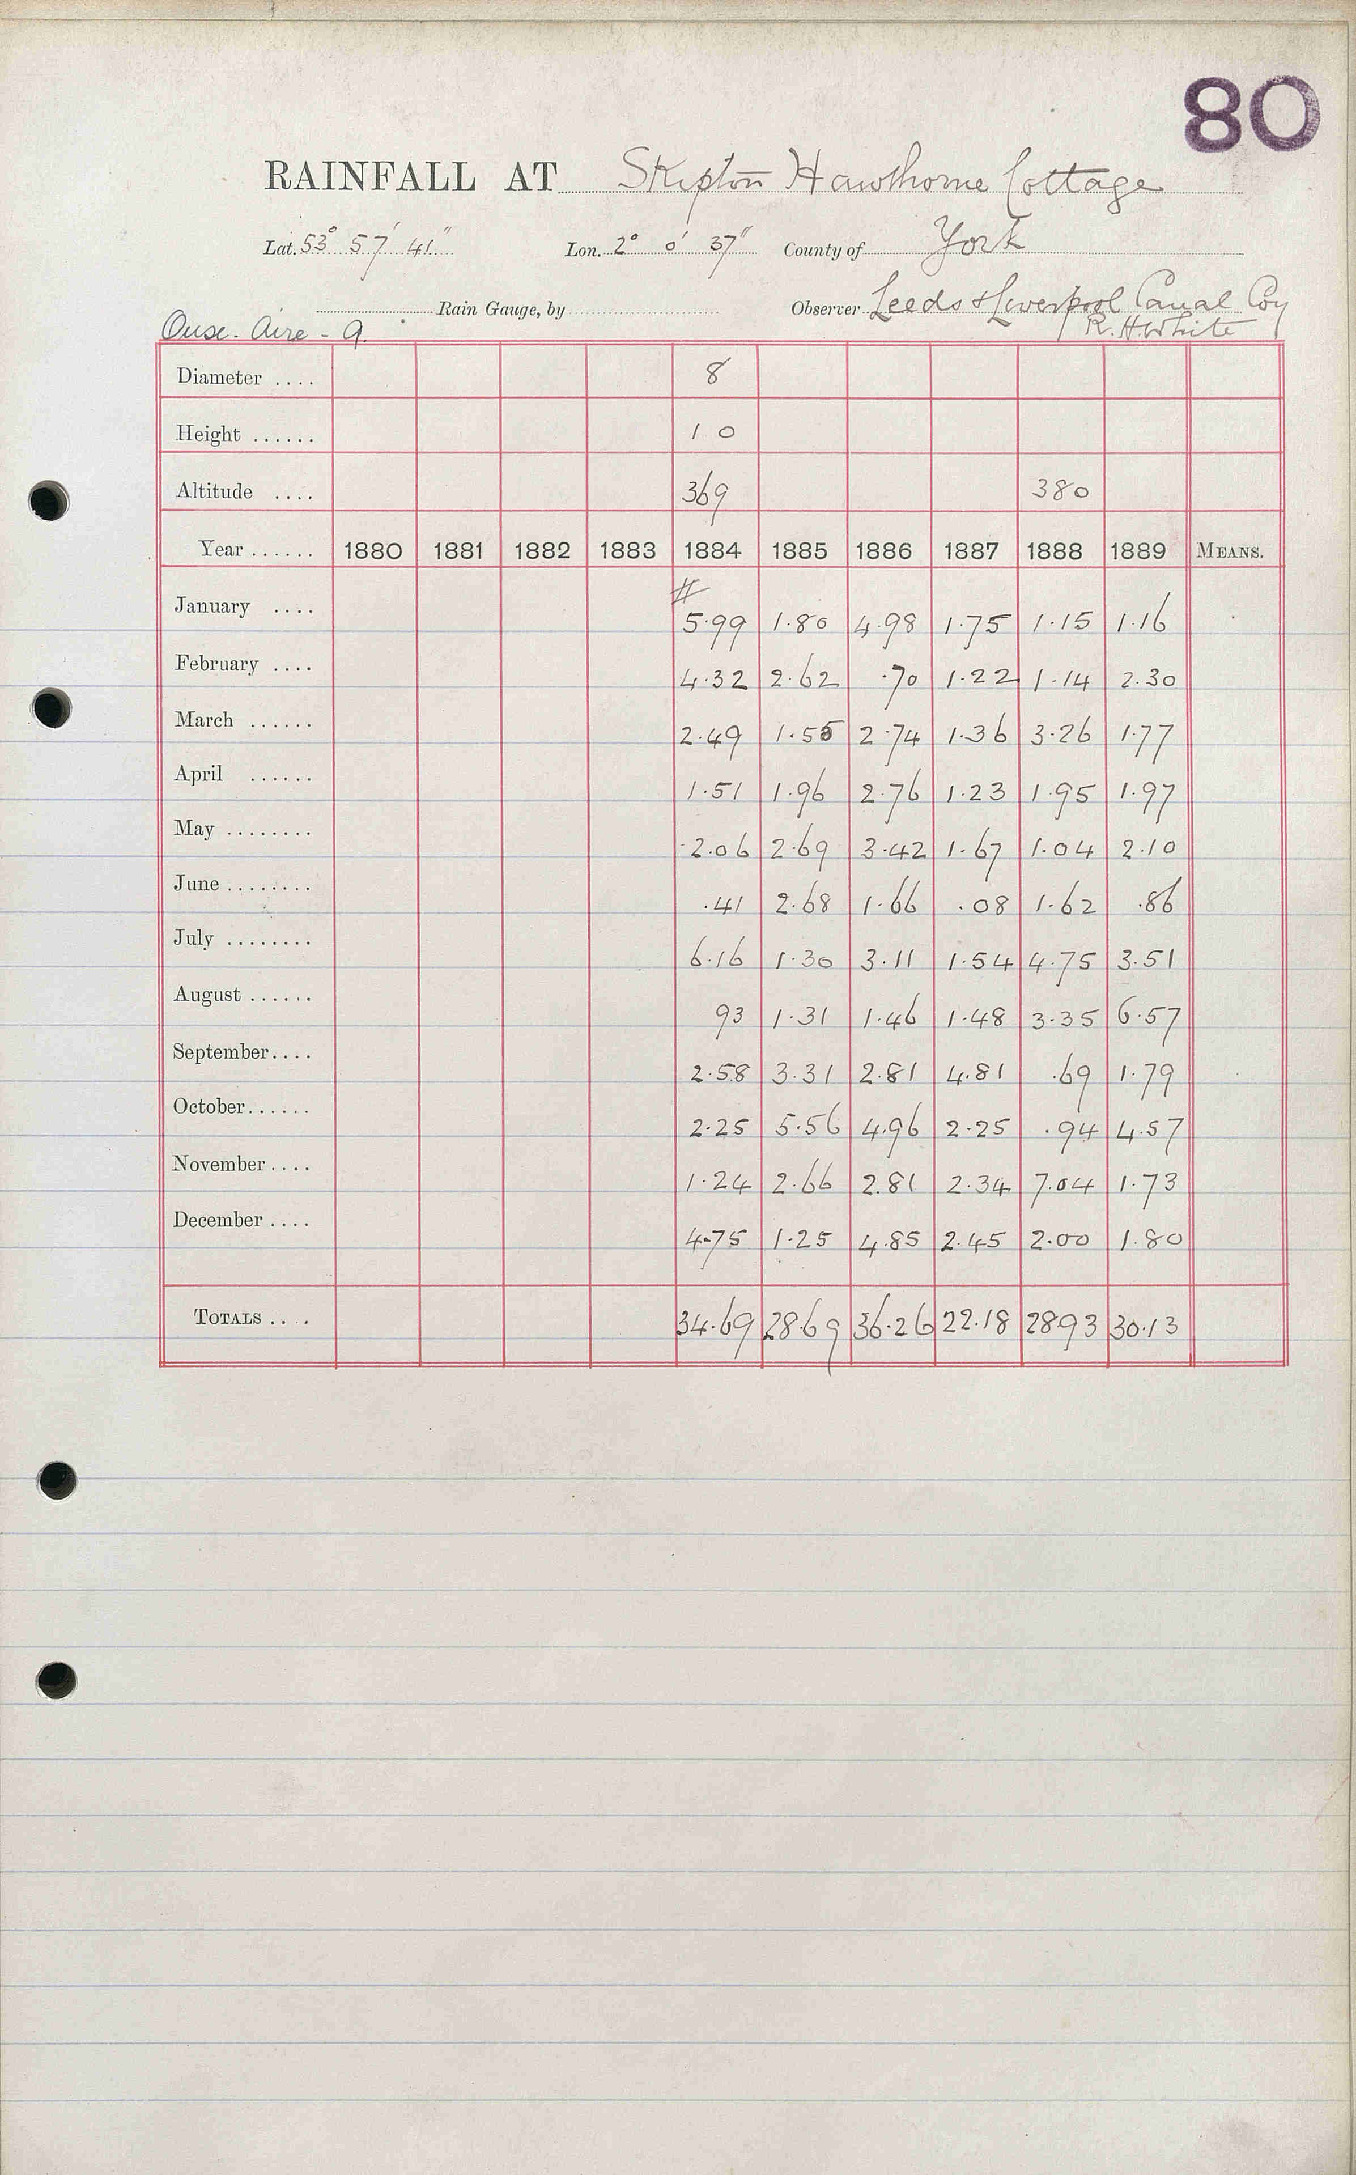 80
RAINFALL AT Skipton Hawthorne Cottage
Lat. 53° 57' 41" Lon. 2° 0' 37" County of York
Rain Gauge, by Observer Leeds & Liverpool Canal Coy
Ouse. Aire - 9. R. H. White
Diameter .... 8
Height ...... 1 0
Altitude .... 369 380
Year ...... 1880 1881 1882 1883 1884 1885 1886 1887 1888 1889 MEANS.
January .... # 5.99 1.80 4.98 1.75 1.15 1.16
February .... 4.32 2.62 .70 1.22 1.14 2.30
March ...... 2.49 1.55 2.74 1.36 3.26 1.77
April ...... 1.51 1.96 2.76 1.23 1.95 1.97
May ........ 2.06 2.69 3.42 1.67 1.04 2.10
June ........ .41 2.68 1.66 .08 1.62 .86
July ........ 6.16 1.30 3.11 1.54 4.75 3.51
August ...... 93 1.31 1.46 1.48 3.35 6.57
September .... 2.58 3.31 2.81 4.81 .69 1.79
October ...... 2.25 5.56 4.96 2.25 .94 4.57
November .... 1.24 2.66 2.81 2.34 7.04 1.73
December .... 4.75 1.25 4.85 2.45 2.00 1.80
TOTALS .... 34.69 28.69 36.26 22.18 2893 30.13